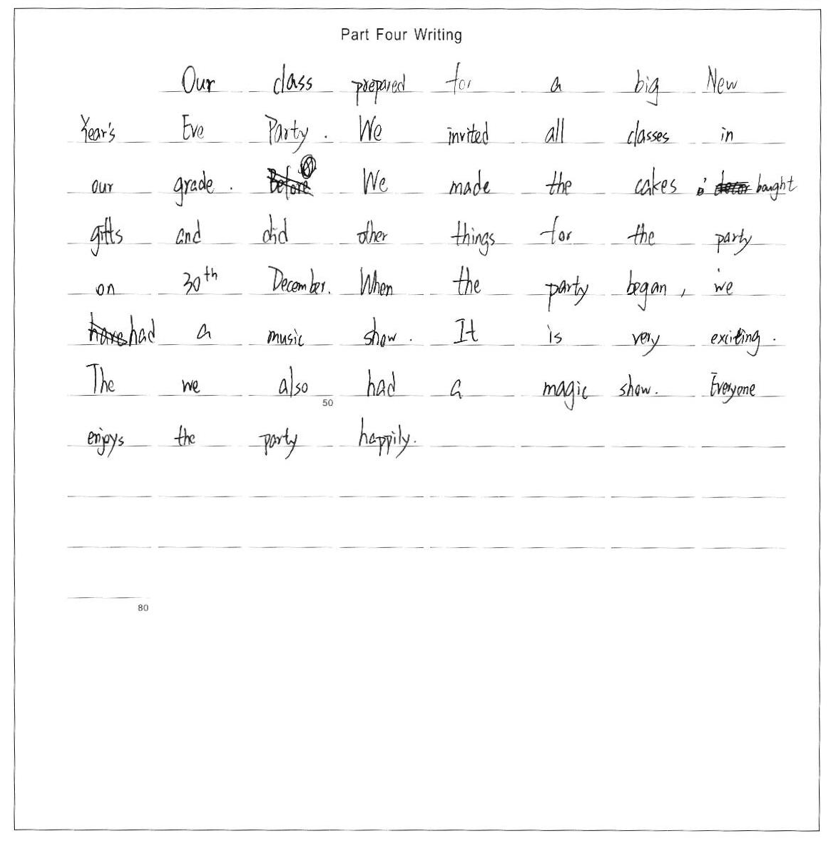 Part Four Writing
Our class prepared for a big New
Year's Eve Party. We invited all classes in
our grade. We made the cakes, bought
gifts and did other things for the party
on 30th December. When the party began, we
had a music show. It is very exciting.
The we also had a magic show. Everyone
50
enjoys the party happily.
80